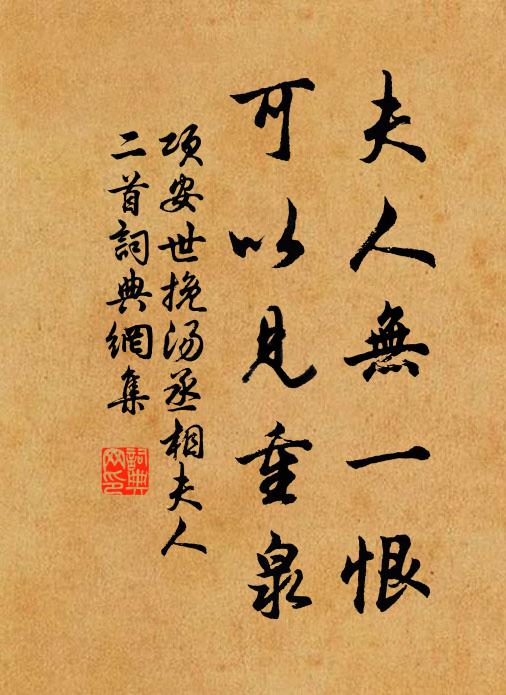 夫人無一恨
可以見重泉
項安世挽汤丞相夫人
二首詞典網集
詞典
网印